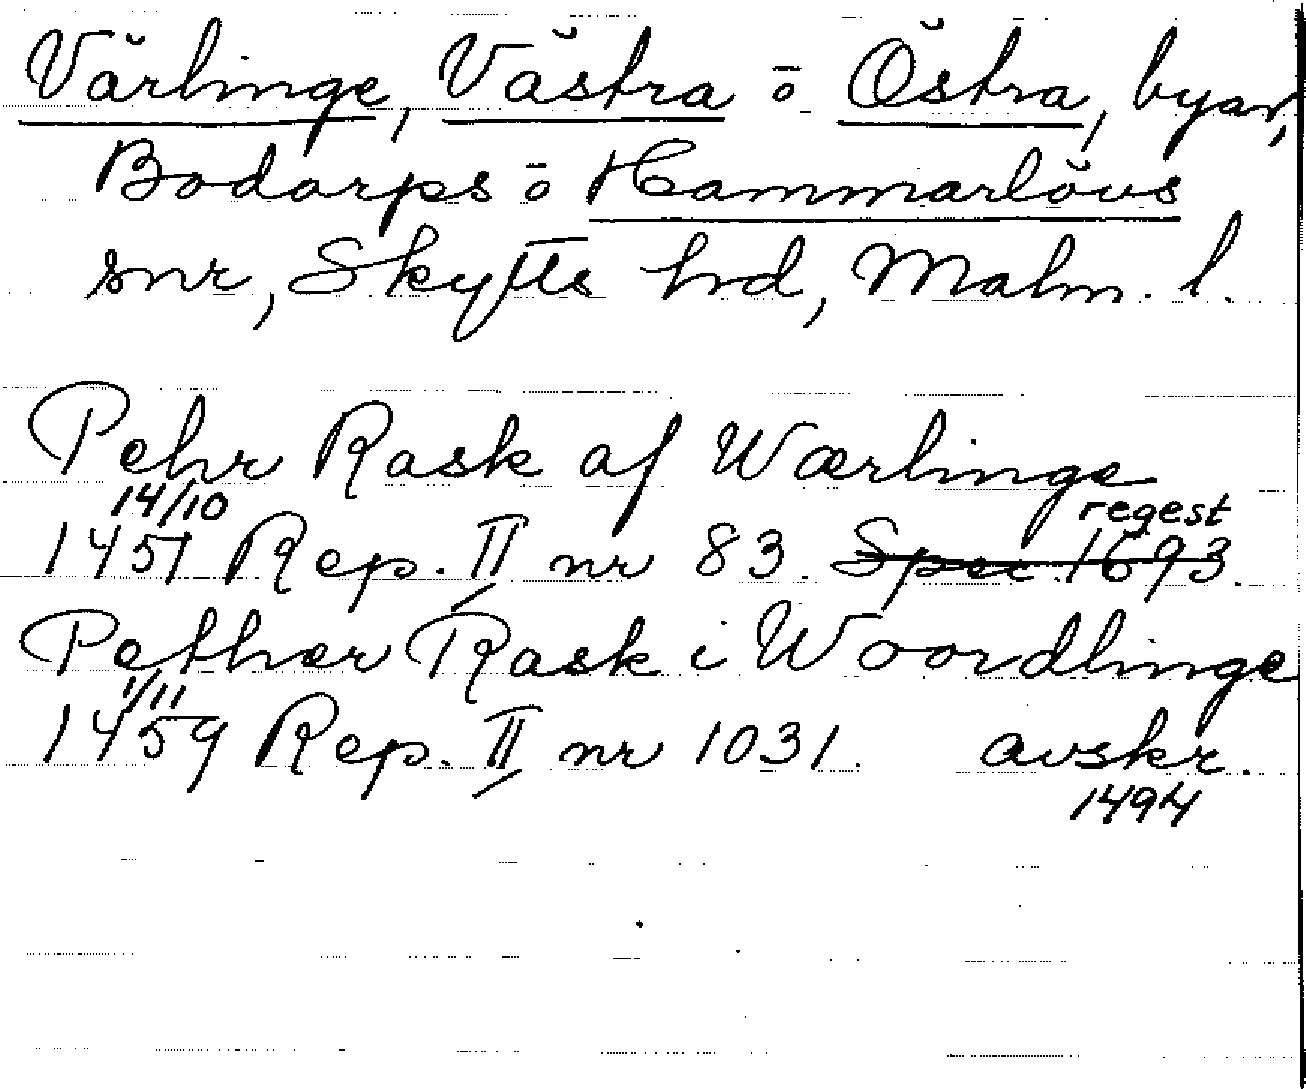 Värlinge, Västra o Östra, byar,
Bodarps o Hammarlövs
snr, Skytts hd, Malm. l.
Pehr Rask af Wærlinge
14/10 regest
1457 Rep. II nr 83. Spec. 1693.
Pether Rask i Woordlinge
1/11
1459 Rep. II nr 1031. avskr.
1494